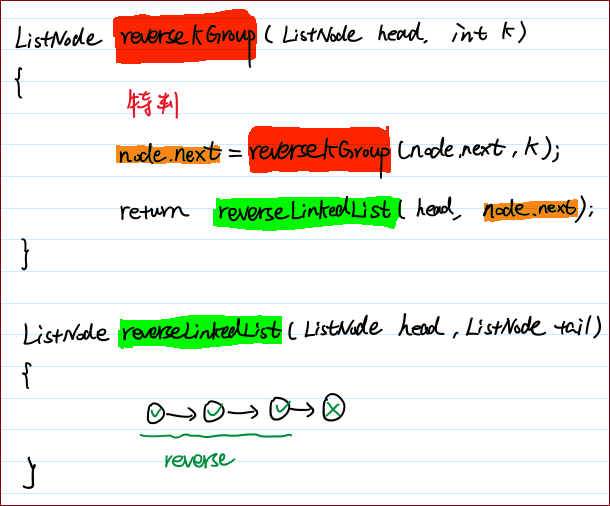 ListNode reverseKGroup ( ListNode head, int k)
{
特判
node.next = reverseKGroup (node.next, k);
return reverseLinkedList( head, node.next);
}
ListNode reverseLinkedList( ListNode head, ListNode tail)
{
reverse
}